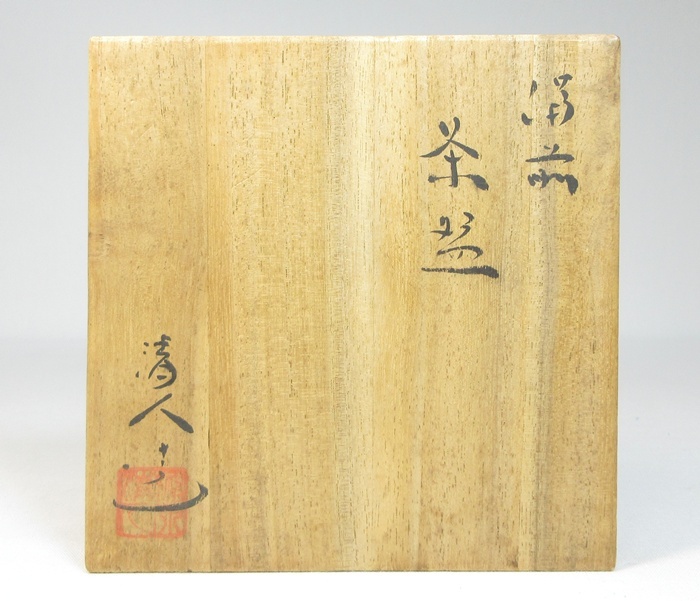 備前
茶盌
清人造